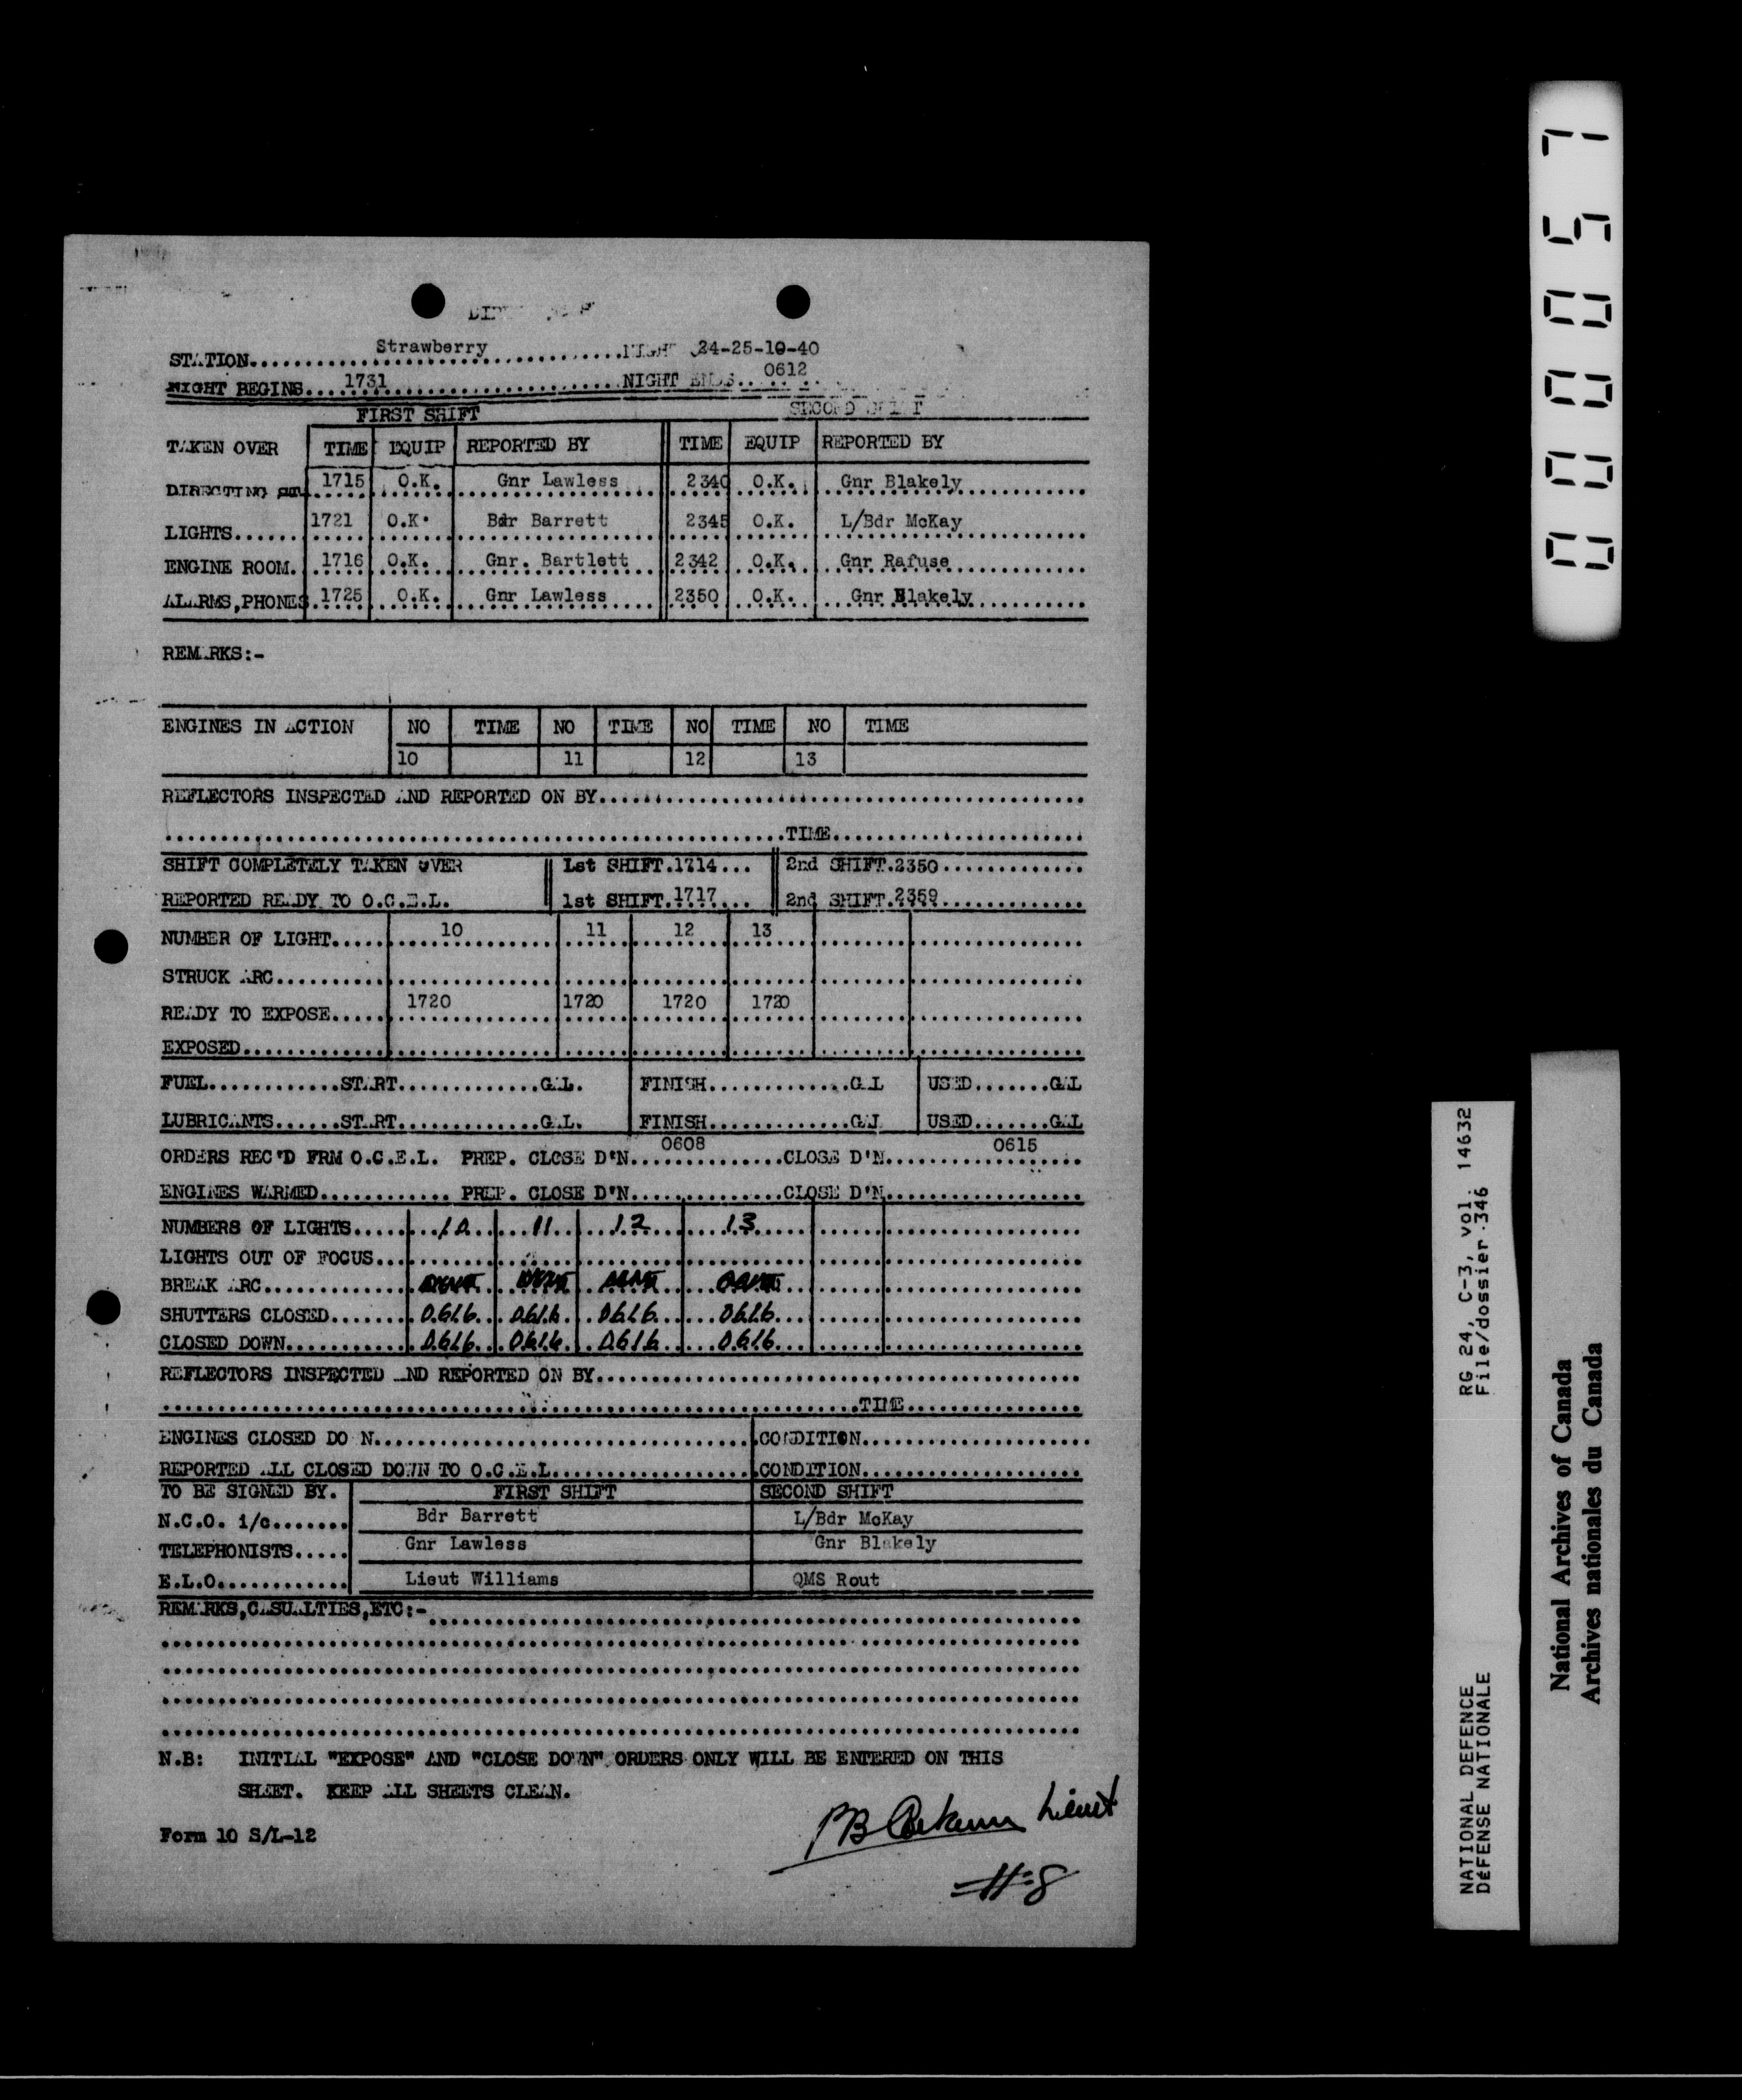 STATION.......Strawberry.......NIGHT 24-25-10-40
NIGHT BEGINS...1731.......NIGHT ENDS...0612...
FIRST SHIFT SECOND SHIFT
TAKEN OVER TIME EQUIP REPORTED BY TIME EQUIP REPORTED BY
DIRECTING STN 1715 O.K. Gnr Lawless 2340 O.K. Gnr Blakely
LIGHTS...... 1721 O.K. Bdr Barrett 2345 O.K. L/Bdr McKay
ENGINE ROOM. 1716 O.K. Gnr. Bartlett 2342 O.K. Gnr Rafuse
ALARMS,PHONES 1725 O.K. Gnr Lawless 2350 O.K. Gnr Blakely
REMARKS:-
ENGINES IN ACTION NO TIME NO TIME NO TIME NO TIME
10 11 12 13
REFLECTORS INSPECTED AND REPORTED ON BY.......
.......TIME.......
SHIFT COMPLETELY TAKEN OVER 1st SHIFT.1714... 2nd SHIFT.2350.......
REPORTED READY TO O.C.E.L. 1st SHIFT.1717... 2nd SHIFT.2359.......
NUMBER OF LIGHT..... 10 11 12 13
STRUCK ARC.......
READY TO EXPOSE..... 1720 1720 1720 1720
EXPOSED.......
FUEL............START.............GAL. FINISH.............GAL USED.......GAL
LUBRICANTS......START.............GAL. FINISH.............GAL USED.......GAL
ORDERS REC'D FRM O.C.E.L. PREP. CLOSE D'N...0608...CLOSE D'N...0615...
ENGINES WARMED............ PREP. CLOSE D'N.............CLOSE D'N.......
NUMBERS OF LIGHTS..... 10 11 12 13
LIGHTS OUT OF FOCUS...
BREAK ARC.......
SHUTTERS CLOSED....... 0616 0616 0616 0616
CLOSED DOWN....... 0616 0616 0616 0616
REFLECTORS INSPECTED AND REPORTED ON BY.......
.......TIME.......
ENGINES CLOSED DO N.......CONDITION.......
REPORTED ALL CLOSED DOWN TO O.C.E.L.......CONDITION.......
TO BE SIGNED BY. FIRST SHIFT SECOND SHIFT
N.C.O. i/c....... Bdr Barrett L/Bdr McKay
TELEPHONISTS..... Gnr Lawless Gnr Blakely
E.L.O............ Lieut Williams QMS Rout
REMARKS,CASUALTIES,ETC:-.......
N.B: INITIAL "EXPOSE" AND "CLOSE DOWN" ORDERS ONLY WILL BE ENTERED ON THIS
SHEET. KEEP ALL SHEETS CLEAN.
Lieut
Form 10 S/L-12
#8
000057
RG 24, C-3, vol. 14632
File/dossier 346
NATIONAL DEFENCE
DÉFENSE NATIONALE
National Archives of Canada
Archives nationales du Canada